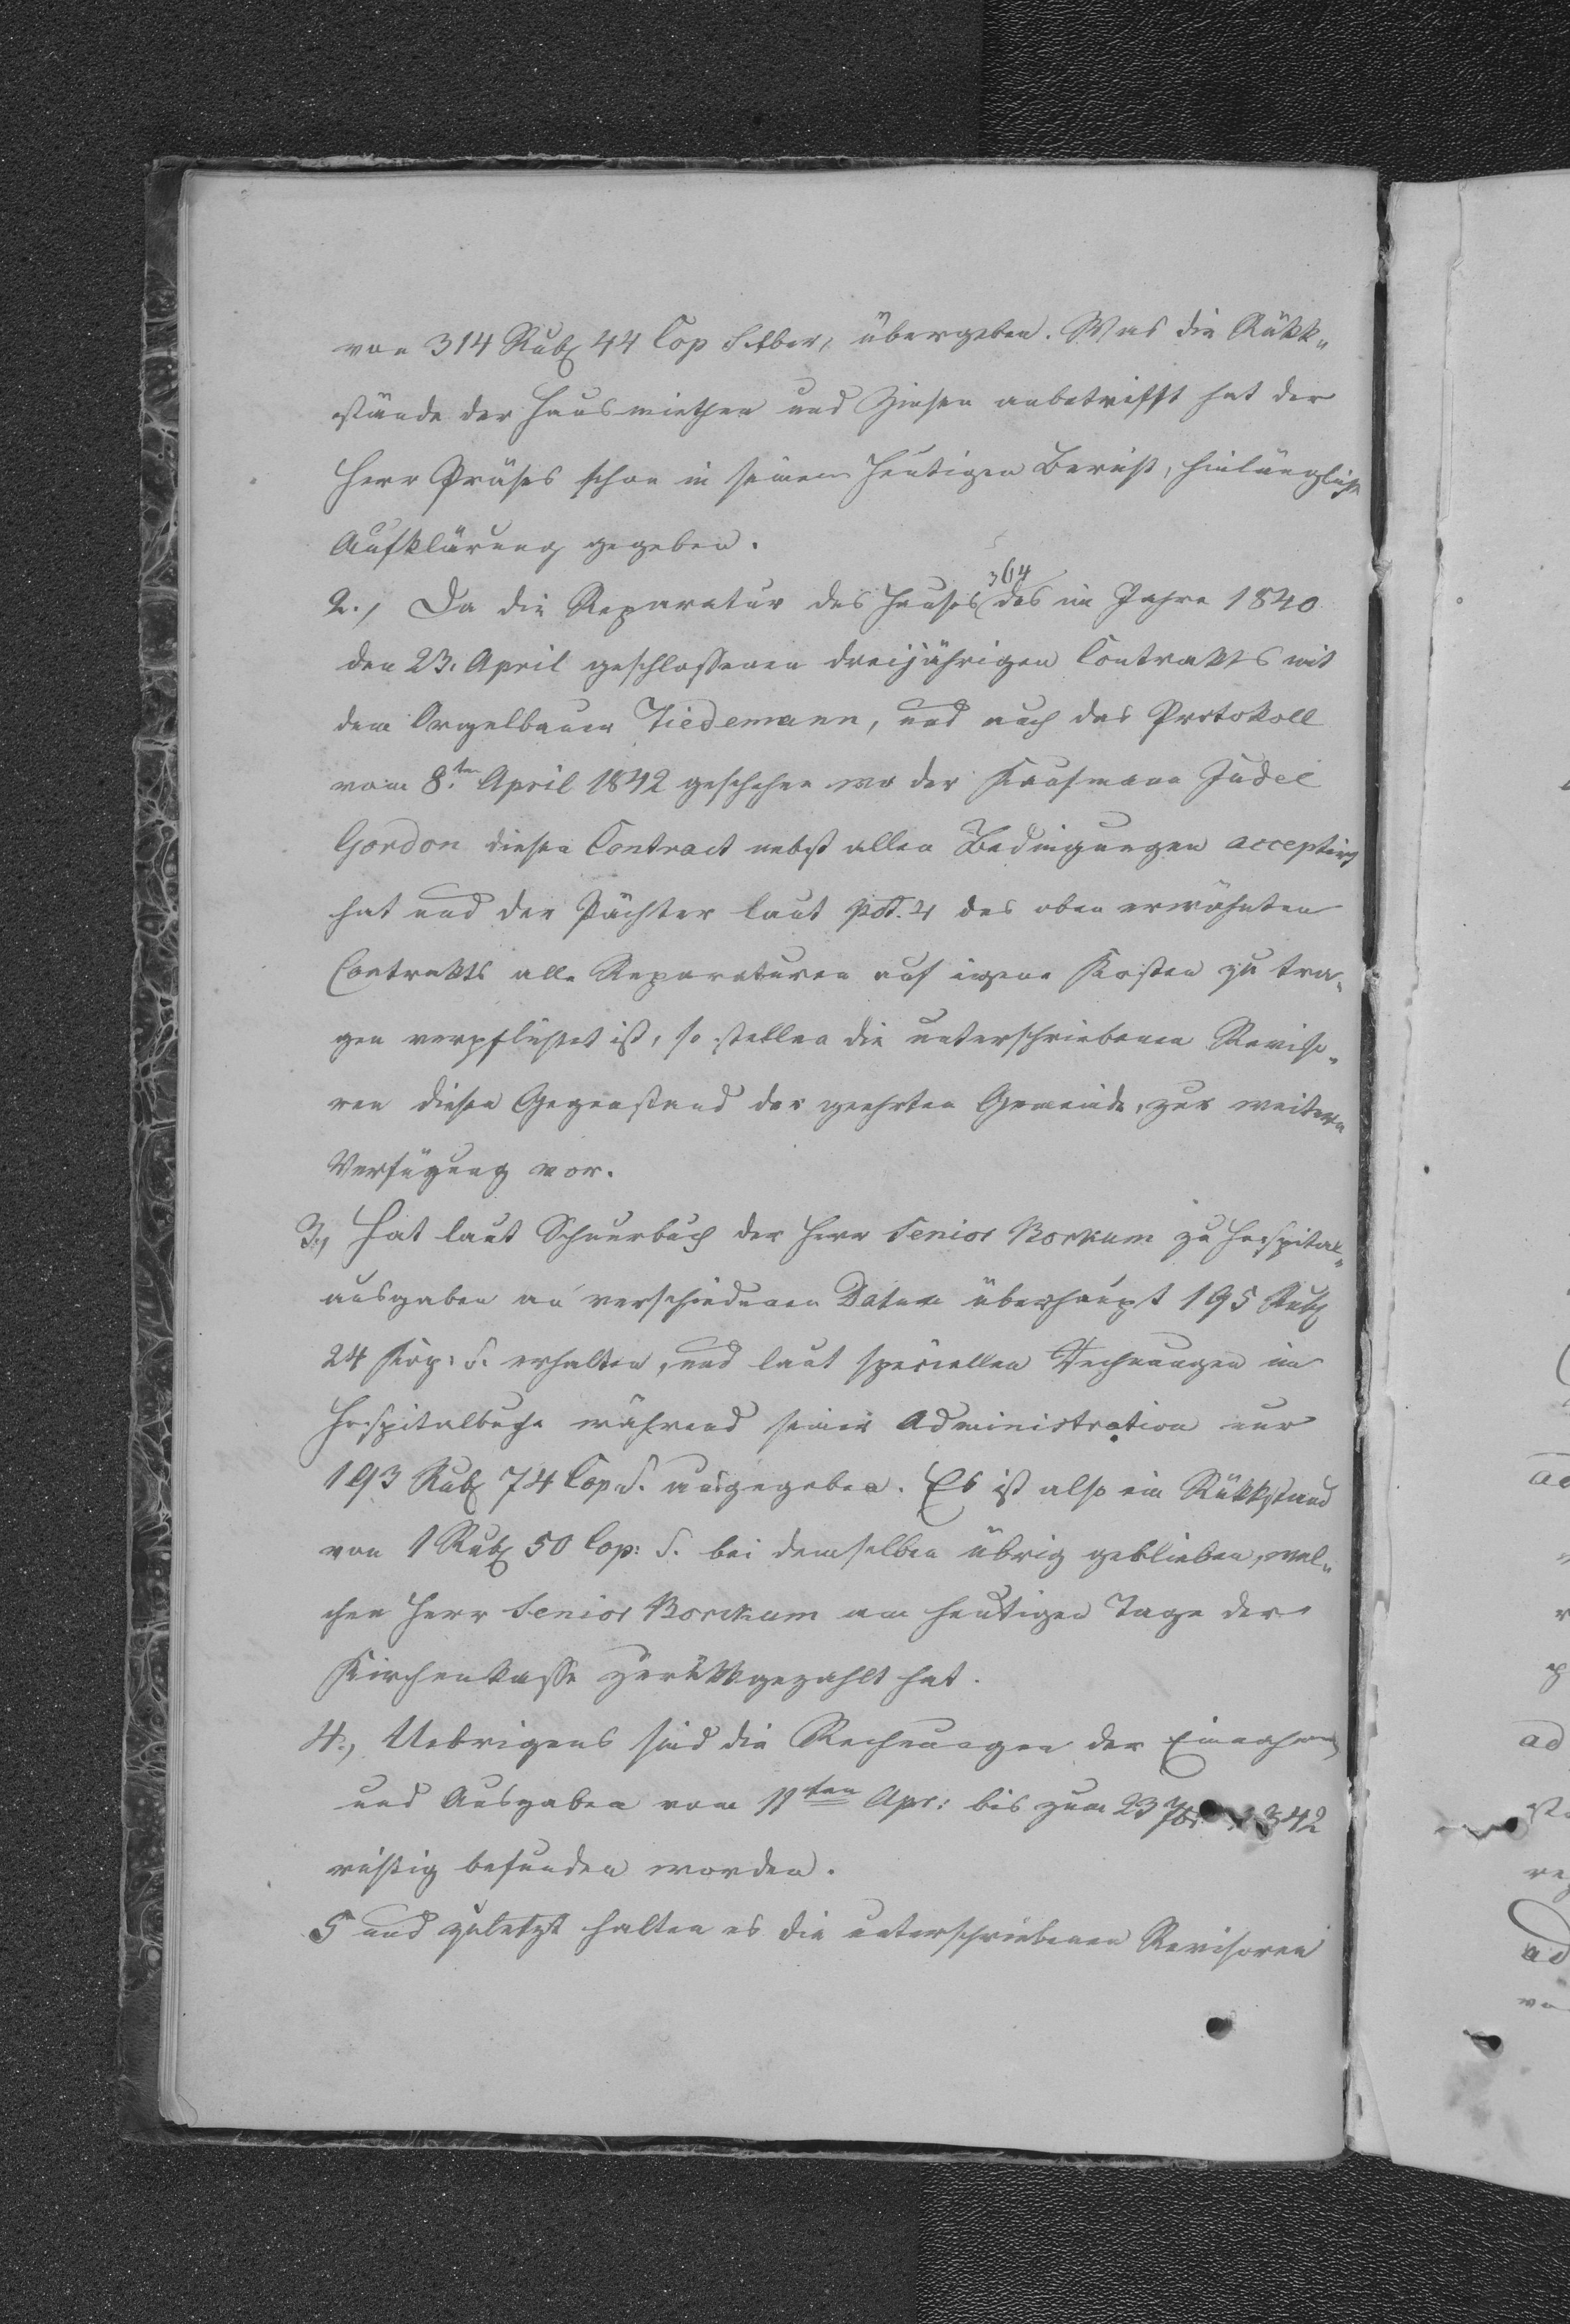 von 314 Rub 44 Cop Silber, übergeben. Was die Rükk„
stände der Hausmiethen und Zinsen anbetrifft hat der
Herr Präses schon in seinem heutigen Bericht, hinlänglich
Aufklärung gegeben.
2., Da die Reparatur des Hauses 364 des im Jahre 1840
den 23. April geschlossenen dreijährigen Contrakts mit
dem Orgelbauer Tiedemann, und auch das Protokoll
vom 8ten April 1842 geschehen wo der Kaufmann Judel
Gordon diesen Contract nebst allen Bedingungen acceptirt
hat und der Pächter laut pct. 4 des oben erwähnten
Contrakts alle Reparaturen auf eigene Kosten zu tra„
gen verpflichtet ist, so stellen die unterschriebenen Reviso„
ren diesen Gegenstand der geehrten Gemeinde, zur weitern
Verfügung vor.
3., Hat laut Schnurbuch der Herr Senior Borkum zu Hospital„
ausgaben an verschiedenen Daten überhaupt 195 Rub
24 Kop: S. erhalten, und laut speciellen Rechnungen im
Hospitalbuche während seiner Administration nur
193 Rub 74 Cop S. ausgegeben. Es ist also ein Rükkstand
von 1 Rub 50 Cop: S. bei demselben übrig geblieben, wel„
chen Herr Senior Borckum am heutigen Tage der
Kirchenkasse zurükkgezahlt hat.
4., Uebrigens sind die Rechnungen der Einnahmen
und Ausgaben vom 11ten Apr: bis zum 23 7br 1842
richtig befunden worden.
5 und zuletzt halten es die unterschriebenen Revisoren